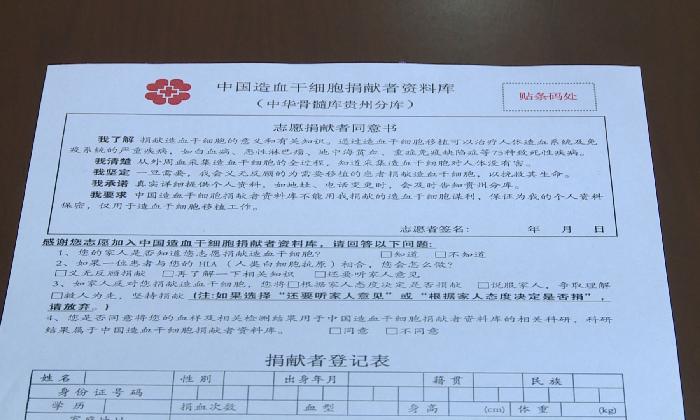 中国造血干细胞捐献者资料库
（中华骨髓库贵州分库）
贴条码处
志愿捐献者同意书
我了解 捐献造血干细胞的意义和有关知识。通过造血干细胞移植可以治疗人体造血系统及免
疫系统的严重疾病，如白血病、恶性淋巴瘤、地中海贫血、重症免疫缺陷症等75种致死性疾病。
我清楚 从外周血采集造血干细胞的全过程，知道采集造血干细胞对人体没有害。
我坚定 一旦需要，我会义无反顾的为需要移植的患者捐献造血干细胞，以挽救其生命。
我承诺 真实详细提供个人资料，如地址、电话变更时，会及时告知贵州分库。
我要求 中国造血干细胞捐献者资料库不能用我捐献的造血干细胞谋利，保证为我的个人资料
保密，仅用于造血干细胞移植工作。
志愿者签名： 年 月 日
感谢您志愿加入中国造血干细胞捐献者资料库，请回答以下问题：
1、您的家人是否知道您志愿捐献造血干细胞？ □知道 □不知道
2、如果一位患者与您的HLA（人类白细胞抗原）相合，您会怎么做？
□义无反顾捐献 □再了解一下相关知识 □还要听家人意见
3、如家人反对您捐献造血干细胞，您将□根据家人态度决定是否捐献 □说服家人，争取理解
□救人为先，坚持捐献（注:如果选择“还要听家人意见”或“根据家人态度决定是否捐”，
请放弃。）
4、您是否同意将您的血样及相关检测结果用于中国造血干细胞捐献者资料库的相关科研，科研
结果属于中国造血干细胞捐献者资料库。 □同意 □不同意
捐献者登记表
姓名 性别 出身年月 籍贯 民族
身份证号码
学历 捐血次数 血型 身高 (cm) 体重 (kg)